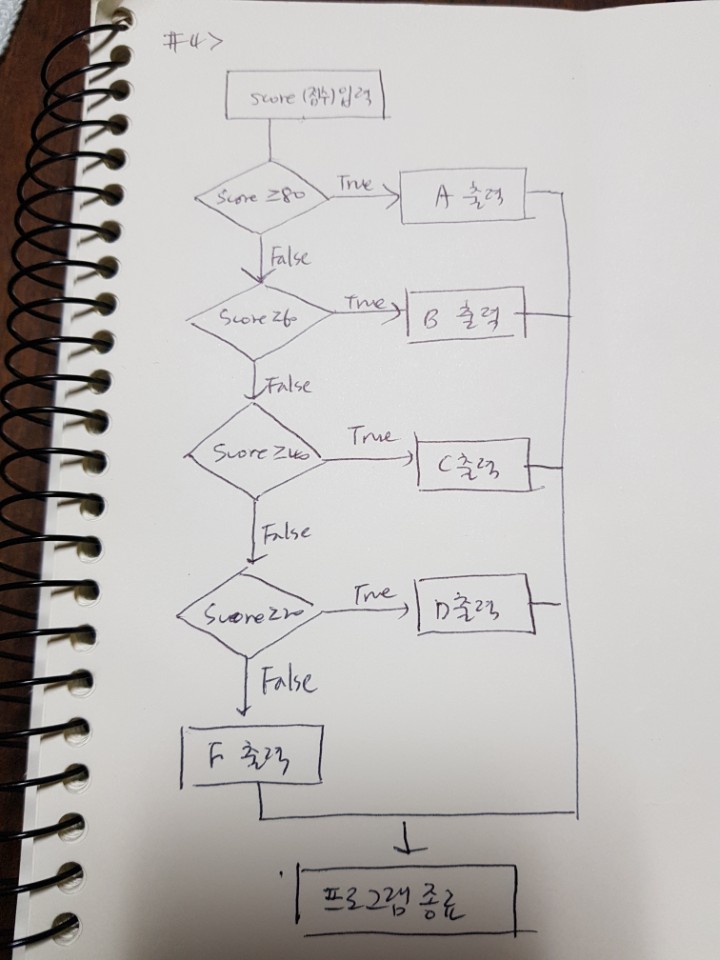 #4>
Score (점수) 입력
Score ≥80
True
A 출력
False
Score ≥60
True
B 출력
False
Score ≥40
True
C 출력
False
Score ≥20
True
D 출력
False
F 출력
프로그램 종료